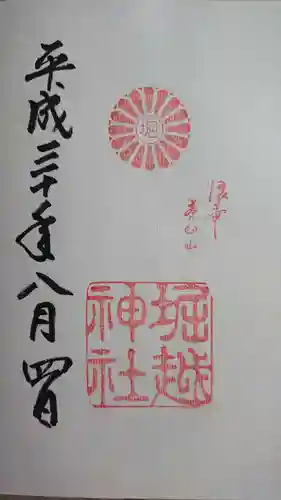 堀
浪岡
堀越
神社
平成三十年八月四日